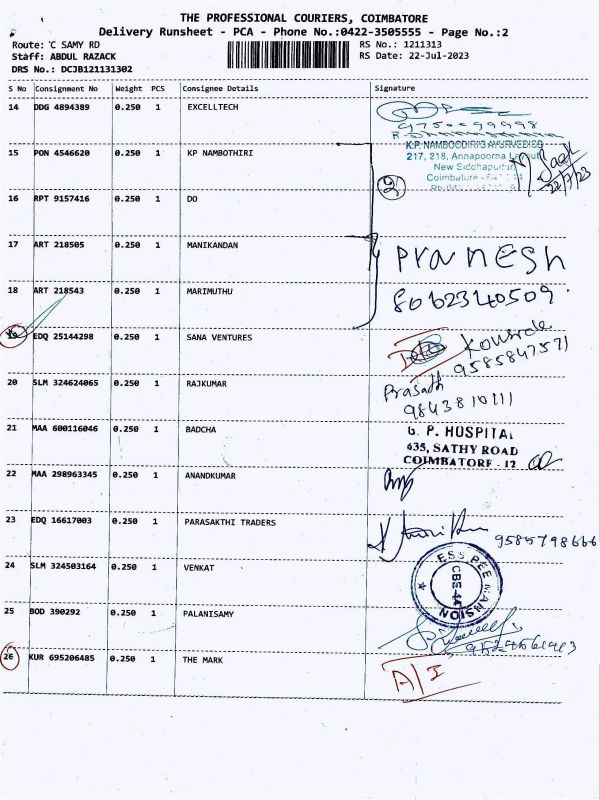 THE PROFESSIONAL COURIERS, COIMBATORE
Delivery Runsheet - PCA - Phone No.:0422-3505555 - Page No.:2
Route: C SAMY RD
Staff: ABDUL RAZACK
DRS No.: DCJB121131302
RS No.: 1211313
RS Date: 22-Jul-2023
S No Consignment No Weight PCS Consignee Details Signature
14 DDG 4894389 0.250 1 EXCELLTECH
15 PON 4546620 0.250 1 KP NAMBOTHIRI
K.P. NAMBOODIRI'S AYURVEDICS
217, 218, Annapoorna Layout
New Siddhapudur
Coimbatore
22/7/23
2
16 RPT 9157416 0.250 1 DO
17 ART 218505 0.250 1 MANIKANDAN
Pranesh
18 ART 218543 0.250 1 MARIMUTHU
8062340509
19 EDQ 25144298 0.250 1 SANA VENTURES
9585847571
20 SLM 324624065 0.250 1 RAJKUMAR
Prasath
9843810111
21 MAA 600116046 0.250 1 BADCHA
G. P. HOSPITAL
635, SATHY ROAD
COIMBATORE - 12
22 MAA 298963345 0.250 1 ANANDKUMAR
23 EDQ 16617003 0.250 1 PARASAKTHI TRADERS
9585798666
24 SLM 324503164 0.250 1 VENKAT
ESS PEE MANSION
CBE-44
25 BOD 390292 0.250 1 PALANISAMY
26 KUR 695206485 0.250 1 THE MARK
A/I